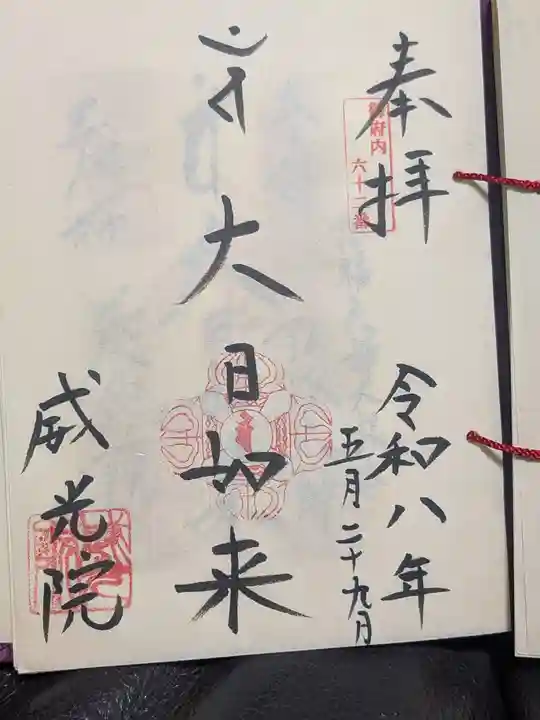 奉拝
御府内
六十二番
令和八年
五月二十九日
大日如来
威光院